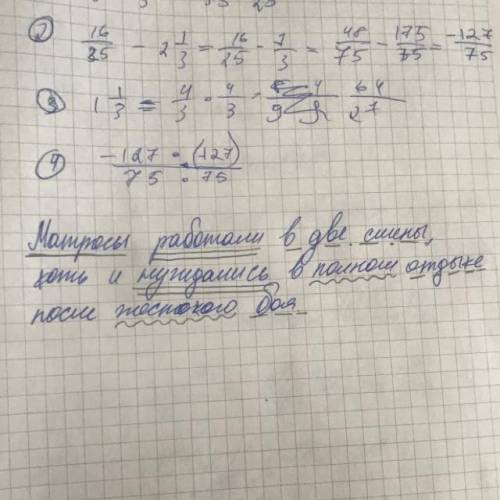 2) 16/25 - 2 1/3 = 16/25 - 7/3 = 48/75 - 175/75 = -127/75
3) 1 1/3 = 4/3 · 4/3 = 64/27
4) -127 · (-127) / 75 · 75
Матросы работали в две смены,
хоть и нуждались в полном отдыхе
после жестокого боя